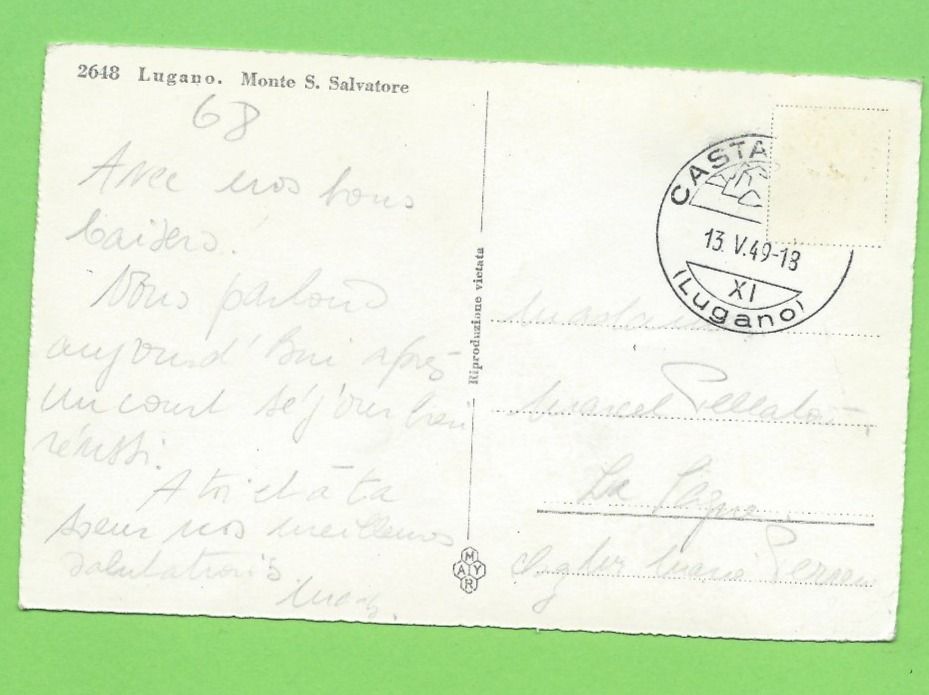 2648 Lugano. Monte S. Salvatore
68
Avec nos bons
baisers.
Nous partons
aujourd'hui après
un court séjour bien
réussi.
A toi et à ta
soeur nos meilleures
salutations.
Riproduzione vietata
MAYR
CASTA
13.V.49-18
XI
(Lugano)
Marcel
La Sagne